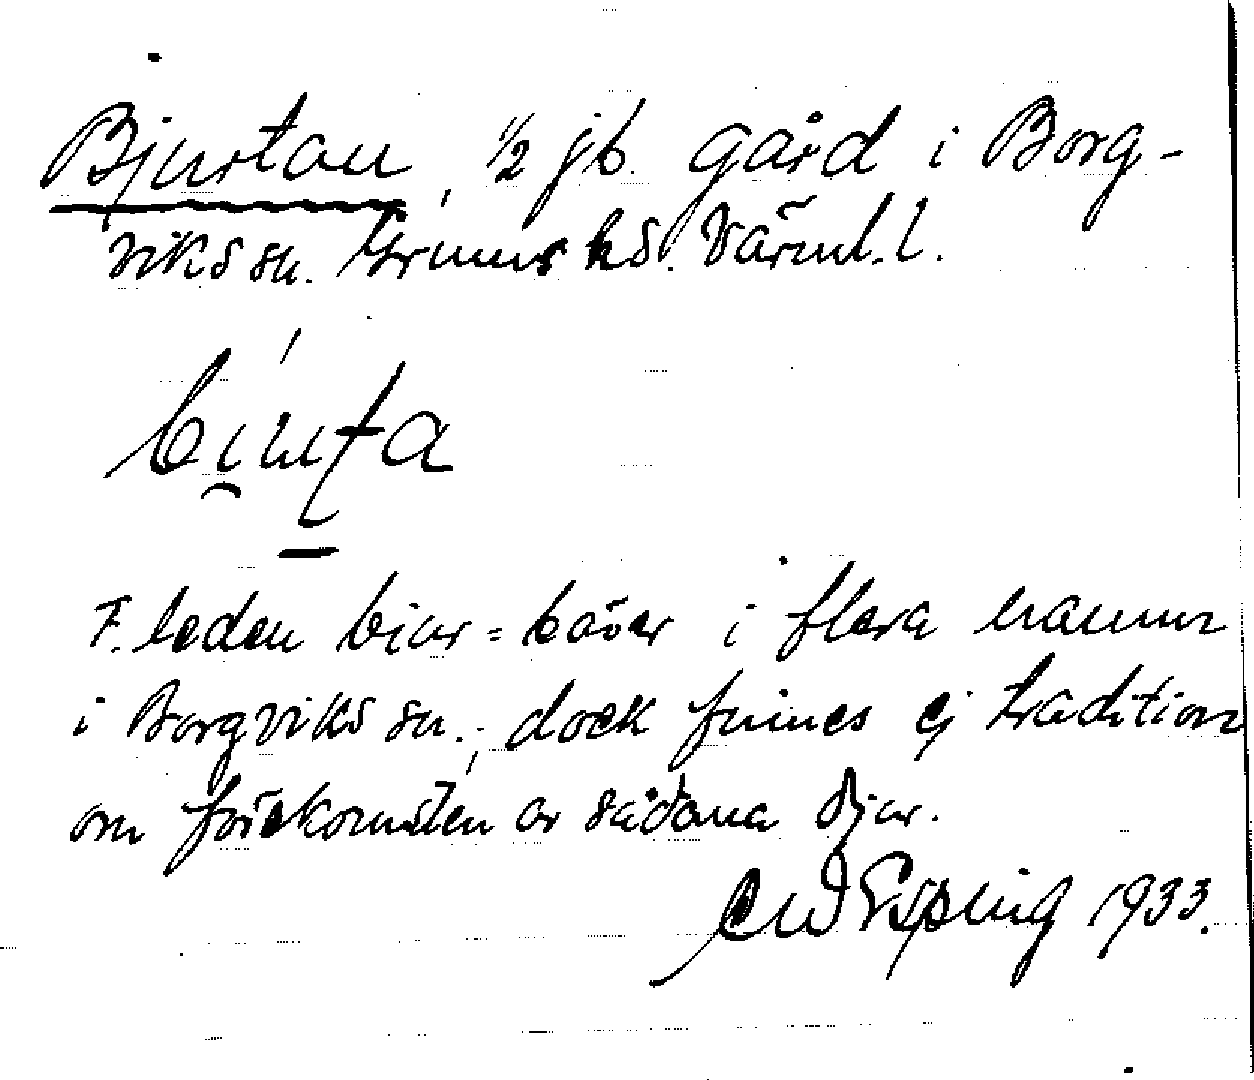 Bjurtan, 1/2 jb. gård i Borg-
viks sn. Grums hd. Värml. l.
F. leden bjur = bäver i flera namn
i Borgviks sn.; dock finnes ej tradition
om förekomsten av sådana djur.
CW Esping 1933.